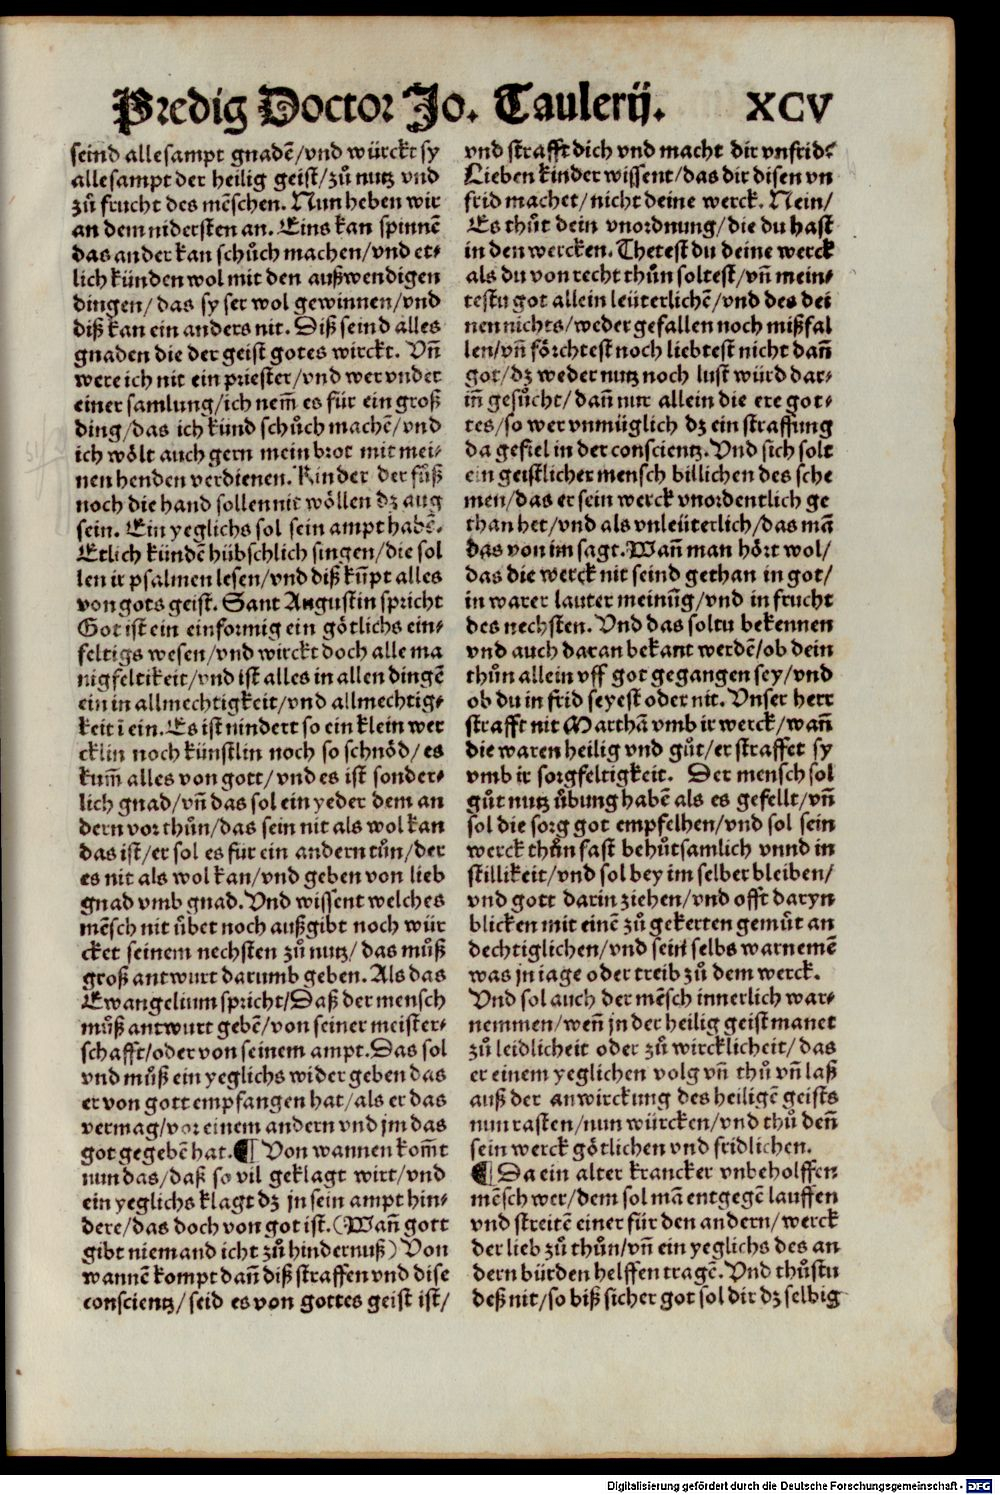 Predig Doctor Jo. Taulerij. XCV
seind allesampt gnadē/vnd würckt sy
allesampt der heilig geist/zů nutz vnd
zů frucht des mēschen. Nun heben wir
an dem nidersten an. Eins kan spinnē
das ander kan schůch machen/vnd et⸗
lich künden wol mit den außwendigen
dingen/das sy ser wol gewinnen/vnd
diß kan ein anders nit. Diß seind alles
gnaden die der geist gotes wirckt. Vn̄
were ich nit ein priester/vnd wer vnder
einer samlung/ich nem̄ es für ein groß
ding/das ich kund schůch machē/vnd
ich wölt auch gern mein brot mit mei⸗
nen henden verdienen. Kinder der fůß
noch die hand sollen nit wöllen dz aug
sein. Ein yeglichs sol sein ampt habē.
Etlich kündē hübschlich singen/die sol
len ir psalmen lesen/vnd diß kūpt alles
von gots geist. Sant Augustin spricht
Got ist ein einformig ein götlichs ein⸗
feltigs wesen/vnd wirckt doch alle ma
nigfeltikeit/vnd ist alles in allen dingē
ein in allmechtigkeit/vnd allmechtig⸗
keit ī ein. Es ist nindert so ein klein wer
cklin noch künstlin noch so schnöd/es
kum̄ alles von gott/vnd es ist sonder⸗
lich gnad/vn̄ das sol ein yeder dem an
dern vor thůn/das sein nit als wol kan
das ist/er sol es für ein andern tůn/der
es nit als wol kan/vnd geben von lieb
gnad vmb gnad. Vnd wissent welches
mēsch nit übet noch außgibt noch wür
cket seinem nechsten zů nutz/das můß
groß antwurt darumb geben. Als das
Ewangelium spricht/Daß der mensch
můß antwurt gebē/von seiner meister⸗
schafft/oder von seinem ampt. Das sol
vnd můß ein yeglichs wider geben das
er von gott empfangen hat/als er das
vermag/vor einem andern vnd jm das
got gegebē hat. ¶ Von wannen kom̄t
nun das/daß so vil geklagt wirt/vnd
ein yeglichs klagt dz jn sein ampt hin⸗
dere/das doch von got ist. (Wan̄ gott
gibt niemand icht zů hindernuß) Von
wannē kompt dan̄ diß straffen vnd dise
conscientz/seid es von gottes geist ist/
vnd strafft dich vnd macht dir vnfrid?
Lieben kinder wissent/das dir disen vn
frid machet/nicht deine werck. Nein/
Es thůt dein vnordnung/die du hast
in den wercken. Thetest du deine werck
als du von recht thůn soltest/vn̄ mein⸗
testu got allein leüterlichē/vnd des dei
nen nichts/weder gefallen noch mißfal
len/vn̄ förchtest noch liebtest nicht dan̄
got/dz weder nutz noch lust würd dar⸗
in̄ gesůcht/dan̄ nur allein die ere got⸗
tes/so wer vnmüglich dz ein straffung
da gefiel in der conscientz. Vnd sich solt
ein geistlicher mensch billichen des sche
men/das er sein werck vnordentlich ge
than het/vnd als vnleüterlich/das mā
das von im sagt. Wan̄ man hört wol/
das die werck nit seind gethan in got/
in warer lauter meinūg/vnd in frucht
des nechsten. Vnd das soltu bekennen
vnd auch daran bekant werdē/ob dein
thůn allein vff got gegangen sey/vnd
ob du in frid seyest oder nit. Vnser herr
strafft nit Marthā vmb ir werck/wan̄
die waren heilig vnd gůt/er straffet sy
vmb ir sorgfeltigkeit. Der mensch sol
gůt nutz übung habē als es gefellt/vn̄
sol die sorg got empfelhen/vnd sol sein
werck thůn fast behůtsamlich vnnd in
stillikeit/vnd sol bey im selber bleiben/
vnd gott darin ziehen/vnd offt daryn
blicken mit einē zů gekerten gemüt an
dechtiglichen/vnd sein selbs warnemē
was jn iage oder treib zů dem werck.
Vnd sol auch der mēsch innerlich war⸗
nemmen/wen̄ jn der heilig geist manet
zů leidlicheit oder zů wircklicheit/das
er einem yeglichen volg vn̄ thů vn̄ laß
auß der anwirckung des heiligē geists
nun rasten/nun würcken/vnd thů den̄
sein werck götlichen vnd fridlichen.
¶ Da ein alter krancker vnbeholffen
mēsch wer/dem sol mā entgegē lauffen
vnd streitē einer für den andern/werck
der lieb zů thůn/vn̄ ein yeglichs des an
dern bürden helffen tragē. Vnd thůstu
deß nit/so biß sicher got sol dir dz selbig
Digitalisierung gefördert durch die Deutsche Forschungsgemeinschaft - DFG